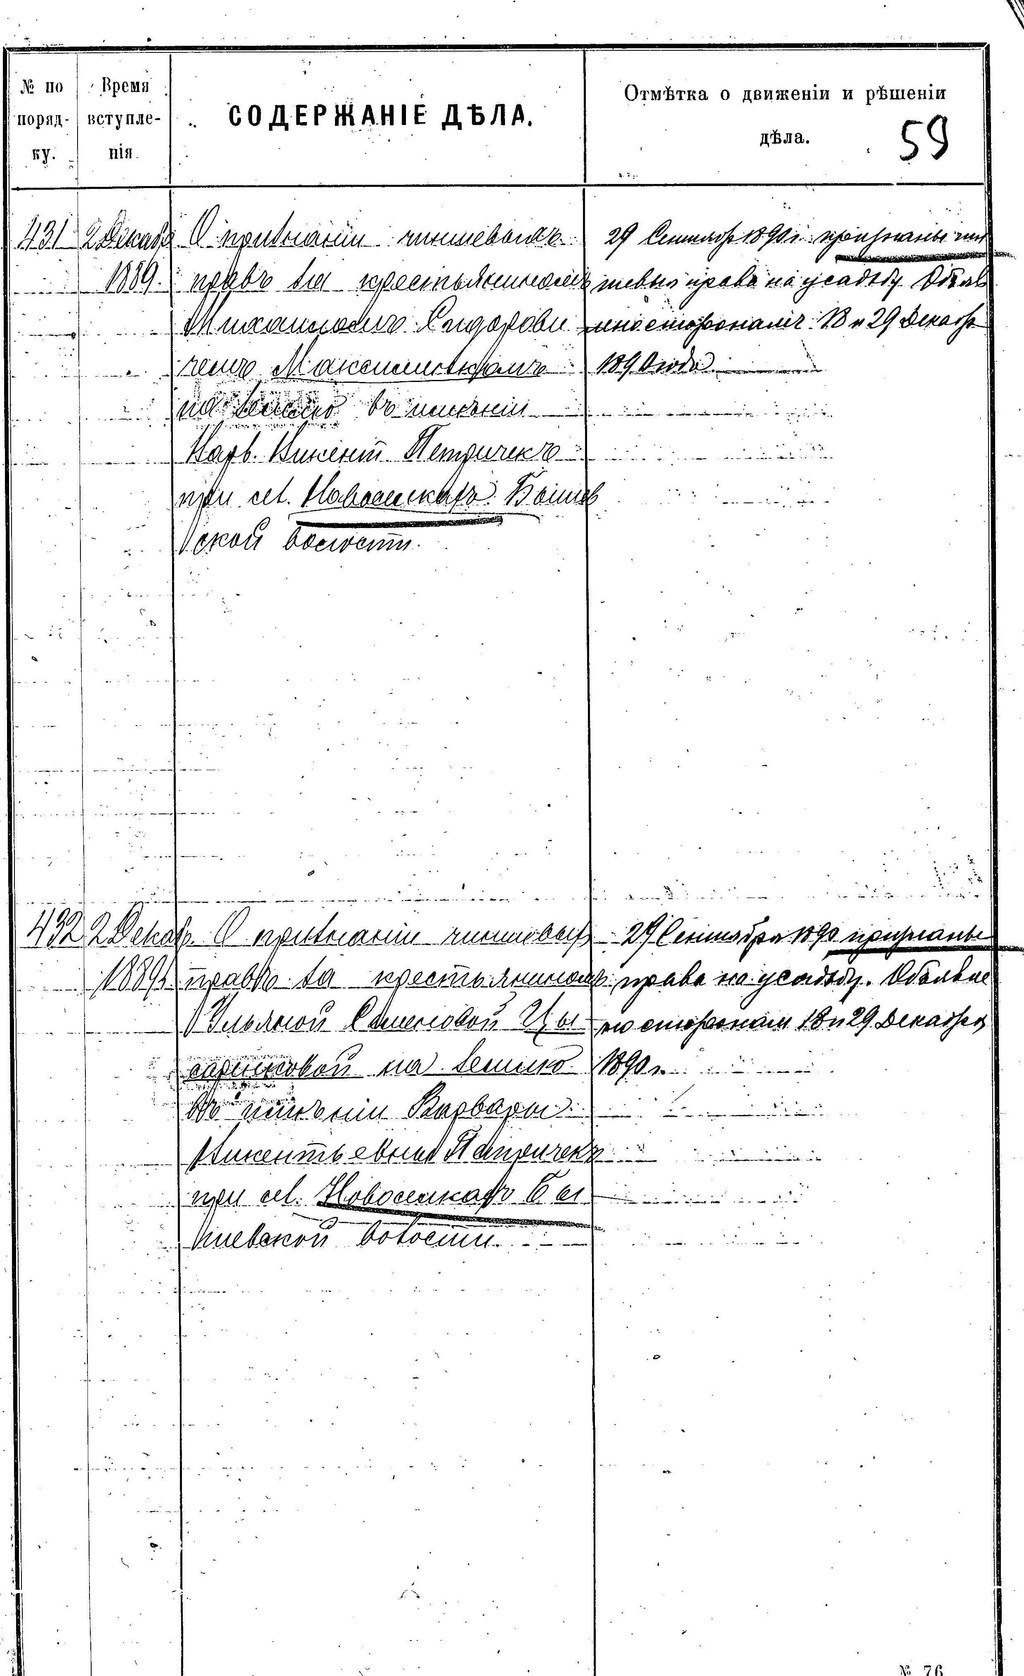 № по поряд-ку.
Время вступле-нія.
СОДЕРЖАНІЕ ДѢЛА.
Отмѣтка о движеніи и рѣшеніи
дѣла.
59
431
2 Декабр
1889.
О признаніи чиншевыхъ
правъ за крестьяниномъ
Михаиломъ Сидорови
чемъ
на землю въ имѣніи
Варв. Викент. Петричекъ
при сел. Новоселкахъ Бышев
ской волости.
29 Сентября 1890 г. признаны чин
шевыя права на усадьбу. Объяв
лено сторонамъ 18 и 29 Декабря
1890 года
432
2 Декаб.
1889
О признаніи чиншевыхъ
правъ за крестьяниномъ
Ульяной Семеновой Цы
на землю
въ имѣніи Варвары
Викентьевны Петричекъ
при сел. Новоселкахъ Бы
шевской волости.
29 Сентября 1890 признаны
права на усадьбу. Объявле
но сторонам 18 и 29 Декабря
1890 г.
№ 76